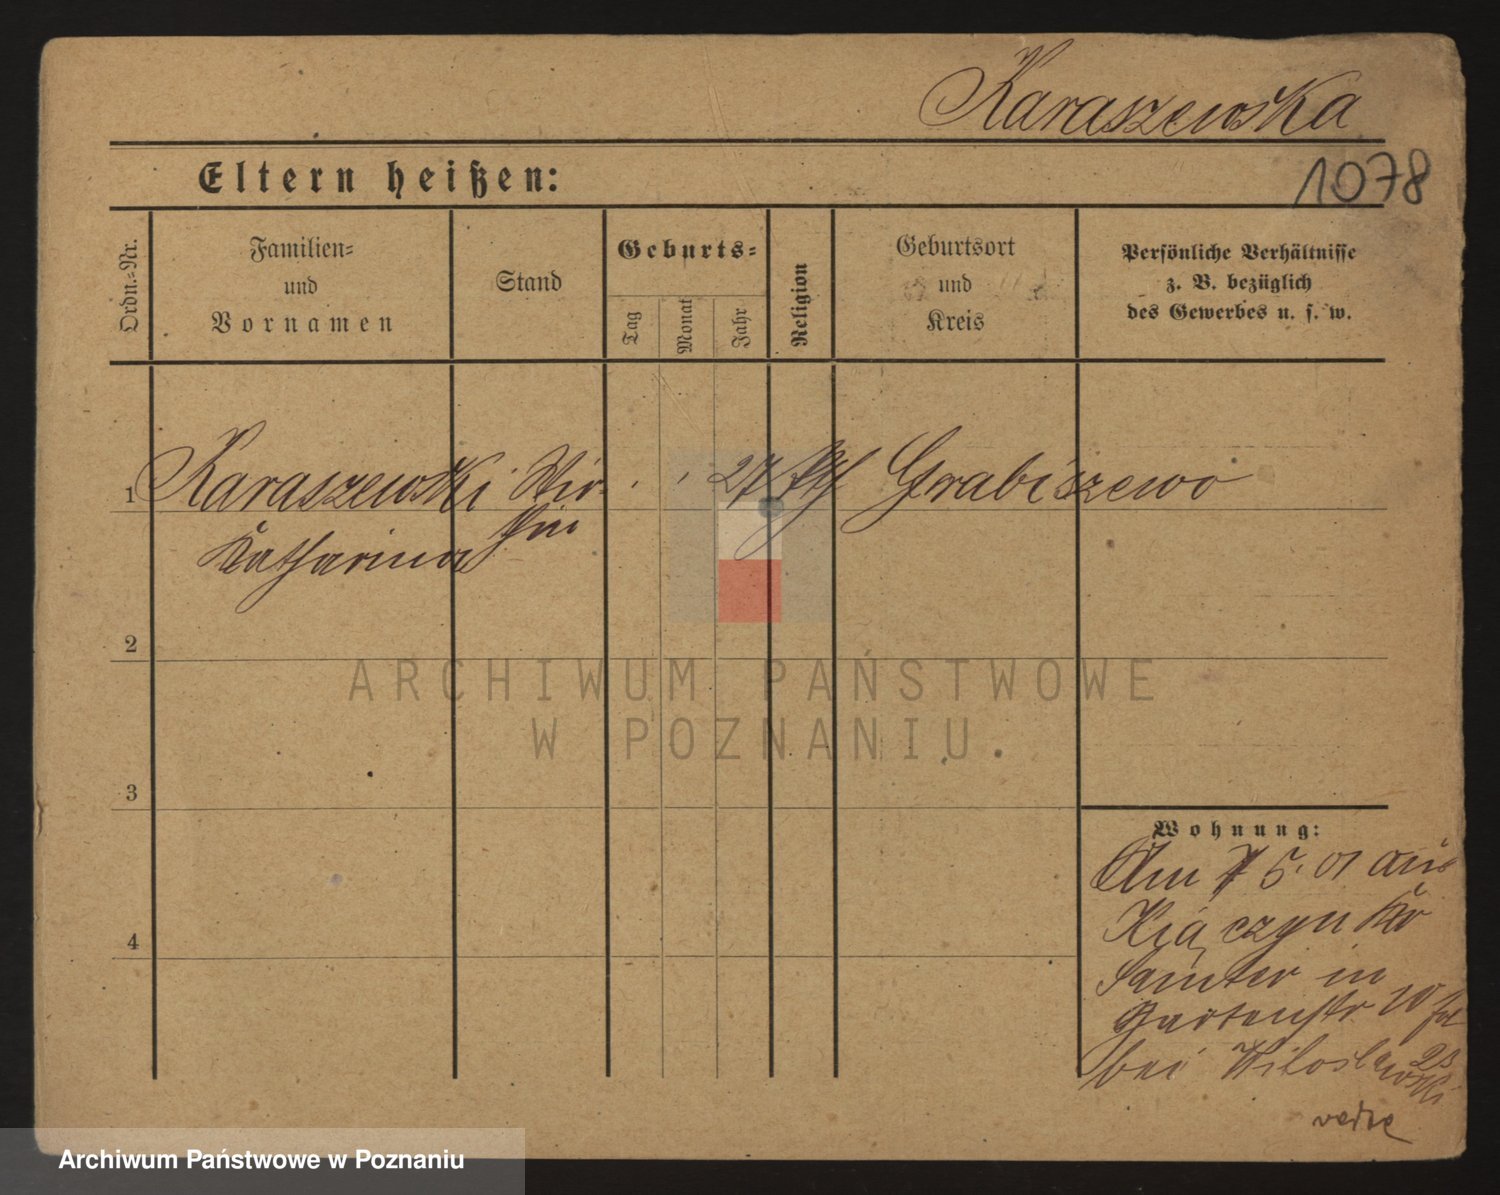 Karaszewska
1078
Eltern heißen:
Ordn.-Nr.
Familien-
und
Vornamen
Stand
Geburts-
Tag
Monat
Jahr
Religion
Geburtsort
und
Kreis
Persönliche Verhältnisse
z. B. bezüglich
des Gewerbes u. s. w.
1 Karaszewski Wir- 27 Grabiszewo
Katharina thin
2
ARCHIWUM PAŃSTWOWE
W POZNANIU.
3
Wohnung:
Am 5. 01 aus
Kiączyn Kr
Samter in
Gartenstr 10
bei
4
Archiwum Państwowe w Poznaniu